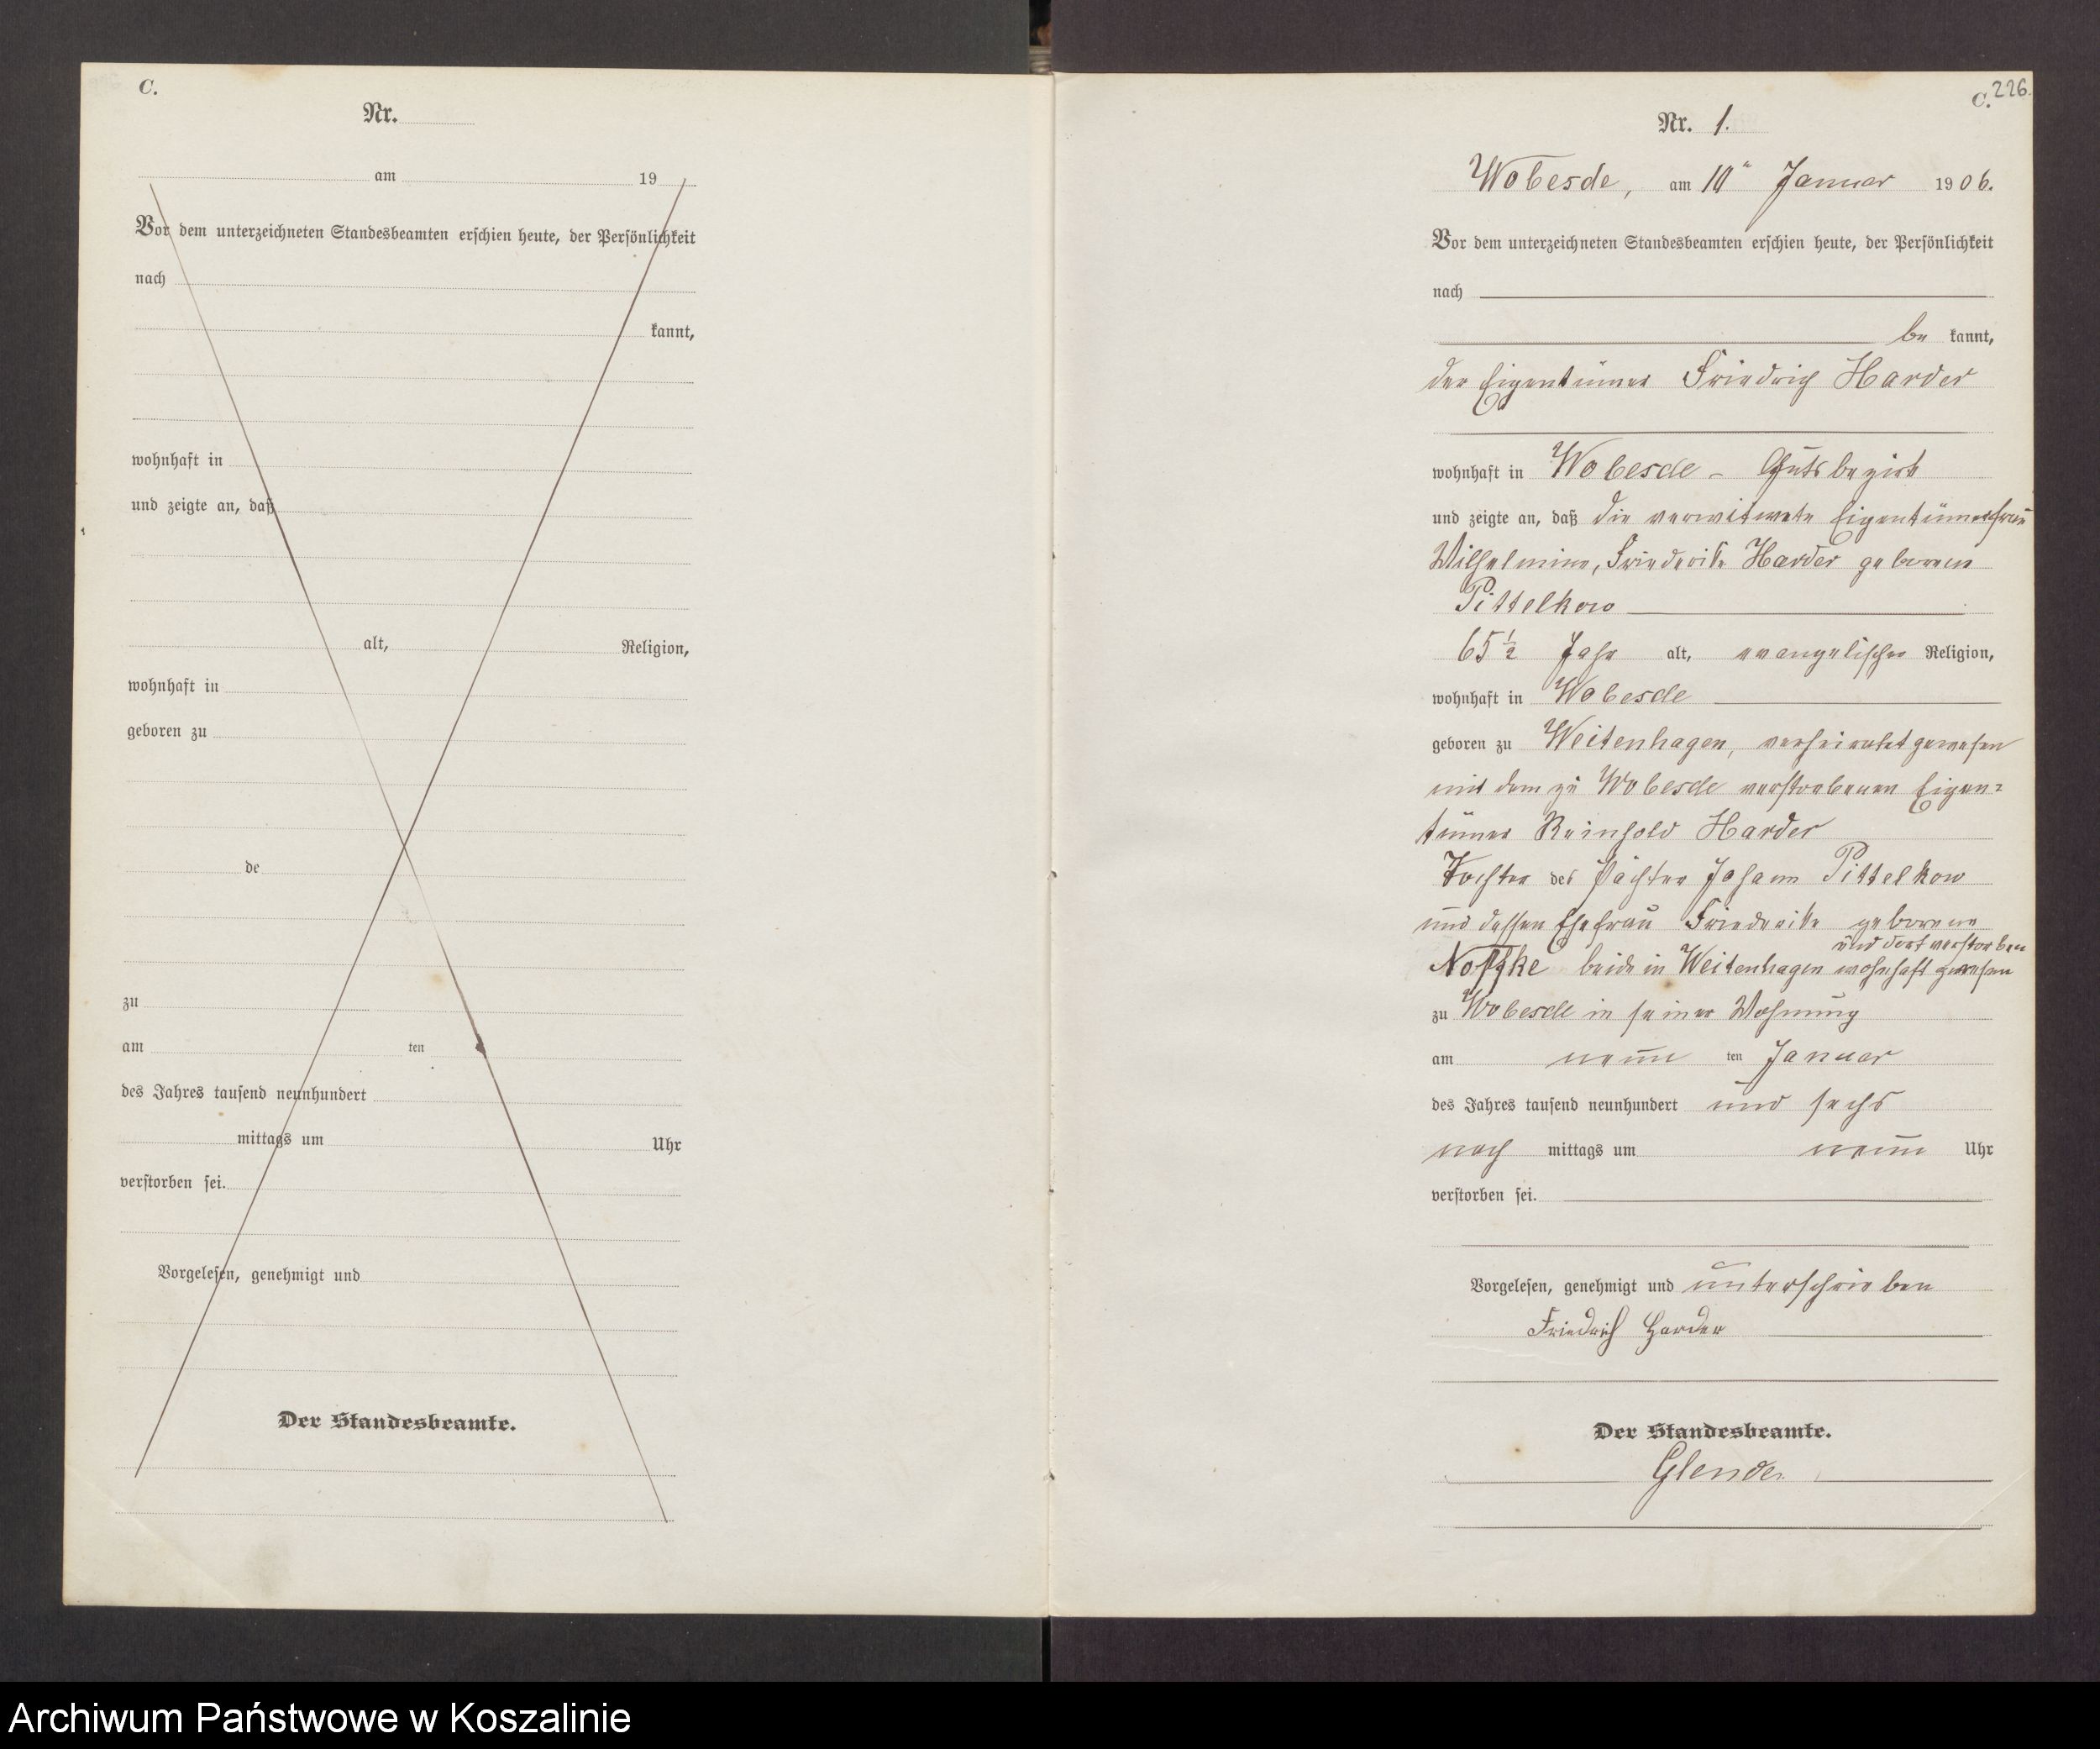 C.
Nr.
am 19
Vor dem unterzeichneten Standesbeamten erschien heute, der Persönlichkeit
nach
kannt,
wohnhaft in
und zeigte an, daß
alt, Religion,
wohnhaft in
geboren zu
de
zu
am ten
des Jahres tausend neunhundert
mittags um Uhr
verstorben sei.
Vorgelesen, genehmigt und
Der Standesbeamte.
C. 226.
Nr. 1.
Wobesde, am 10ⁿ Januar 1906.
Vor dem unterzeichneten Standesbeamten erschien heute, der Persönlichkeit
nach
be kannt,
der Eigentümer Friedrich Harder
wohnhaft in Wobesde - Gutsbezirk
und zeigte an, daß die verwitwete Eigentümerfrau
Wilhelmine, Friederike Harder geborene
Pittelkow
65 ½ Jahr alt, evangelischer Religion,
wohnhaft in Wobesde
geboren zu Weitenhagen, verheiratet gewesen
mit dem zu Wobesde verstorbenen Eigen=
tümer Reinhold Harder
Tochter des Pächter Johann Pittelkow
und dessen Ehefrau Friederike geborene
und dort verstorben
Noffke beide in Weitenhagen wohnhaft gewesen
zu Wobesde in seiner Wohnung
am neun ten Januar
des Jahres tausend neunhundert und sechs
nach mittags um neun Uhr
verstorben sei.
Vorgelesen, genehmigt und unterschrieben
Friedrich Harder
Der Standesbeamte.
Glender
Archiwum Państwowe w Koszalinie